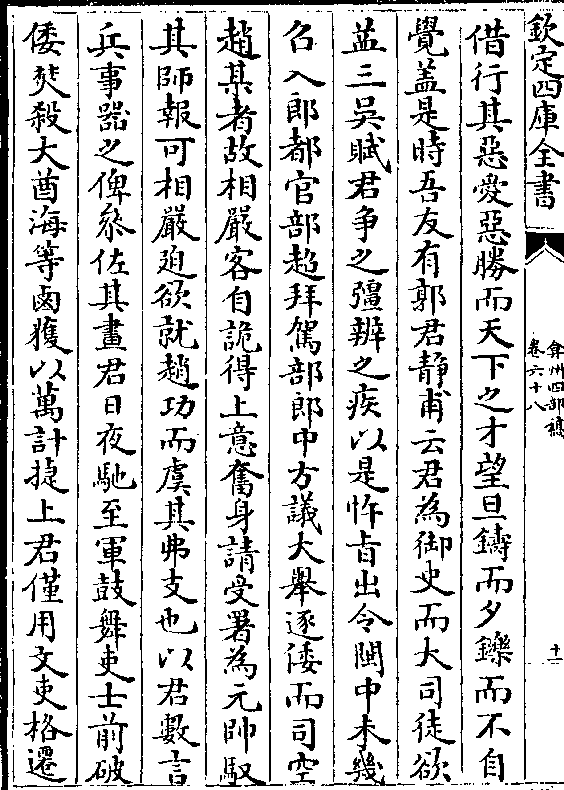 欽定四庫全書
弇州四部稿
卷六十八
十一
借行其惡愛惡勝而天下之才望旦鑄而夕鑠而不自
覺盖是時吾友有郭君静甫云君為御史而大司徒欲
益三吳賦君争之彊辨之疾以是忤㫖出令閩中未幾
召入郎都官部超拜駕部郎中方議大舉逐倭而司空
趙某者故相嚴客自詭得上意奮身請受署為元帥馭
其師報可相嚴廹欲就趙功而虞其弗支也以君數言
兵事器之俾叅佐其畫君日夜馳至軍鼓舞吏士前破
倭焚殺大酋海等鹵獲以萬計捷上君僅用文吏格遷